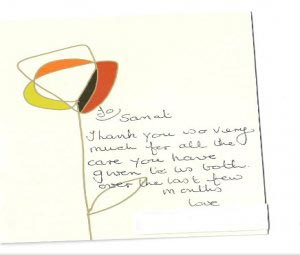 To
Sanat
Thank you so very
much for all the
care you have
given to us both
over the last few
months
Love